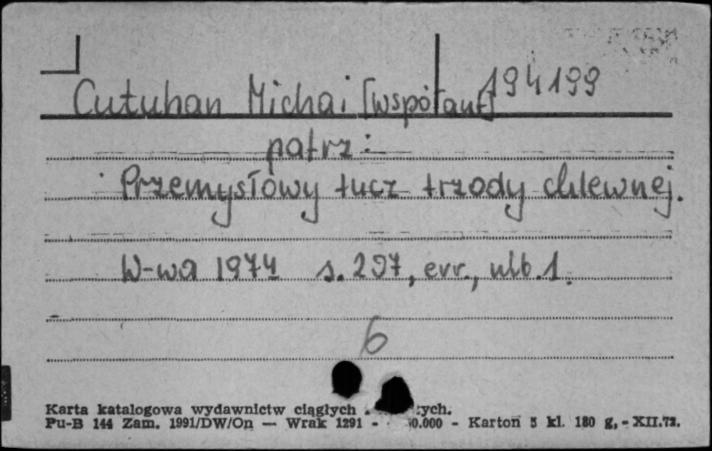 Cutuhan Michai [współaut] 194199
patrz:
Przemysłowy tucz trzody chlewnej.
W-wa 1974 s. 297, err., nlb. 1.
6
Karta katalogowa wydawnictw ciągłych
Pu-B 144 Zam. 1991/DW/On — Wrak 1291 - 0.000 - Karton 5 kl. 180 g, - XII.72.